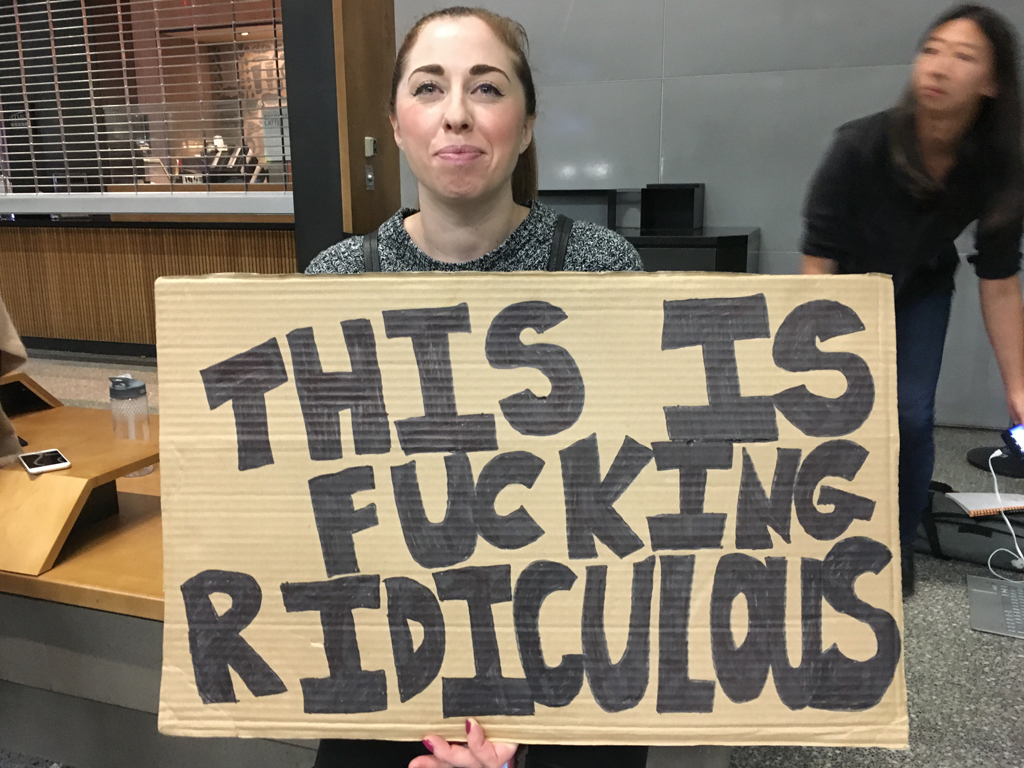 THIS IS
FUCKING
RIDICULOUS